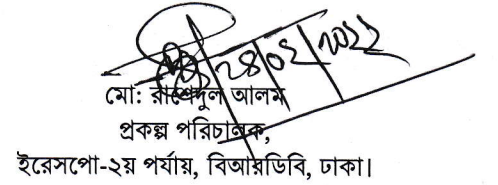 28/02/2022
মো: রাশেদুল আলম
প্রকল্প পরিচালক,
ইরেসপো-২য় পর্যায়, বিআরডিবি, ঢাকা।